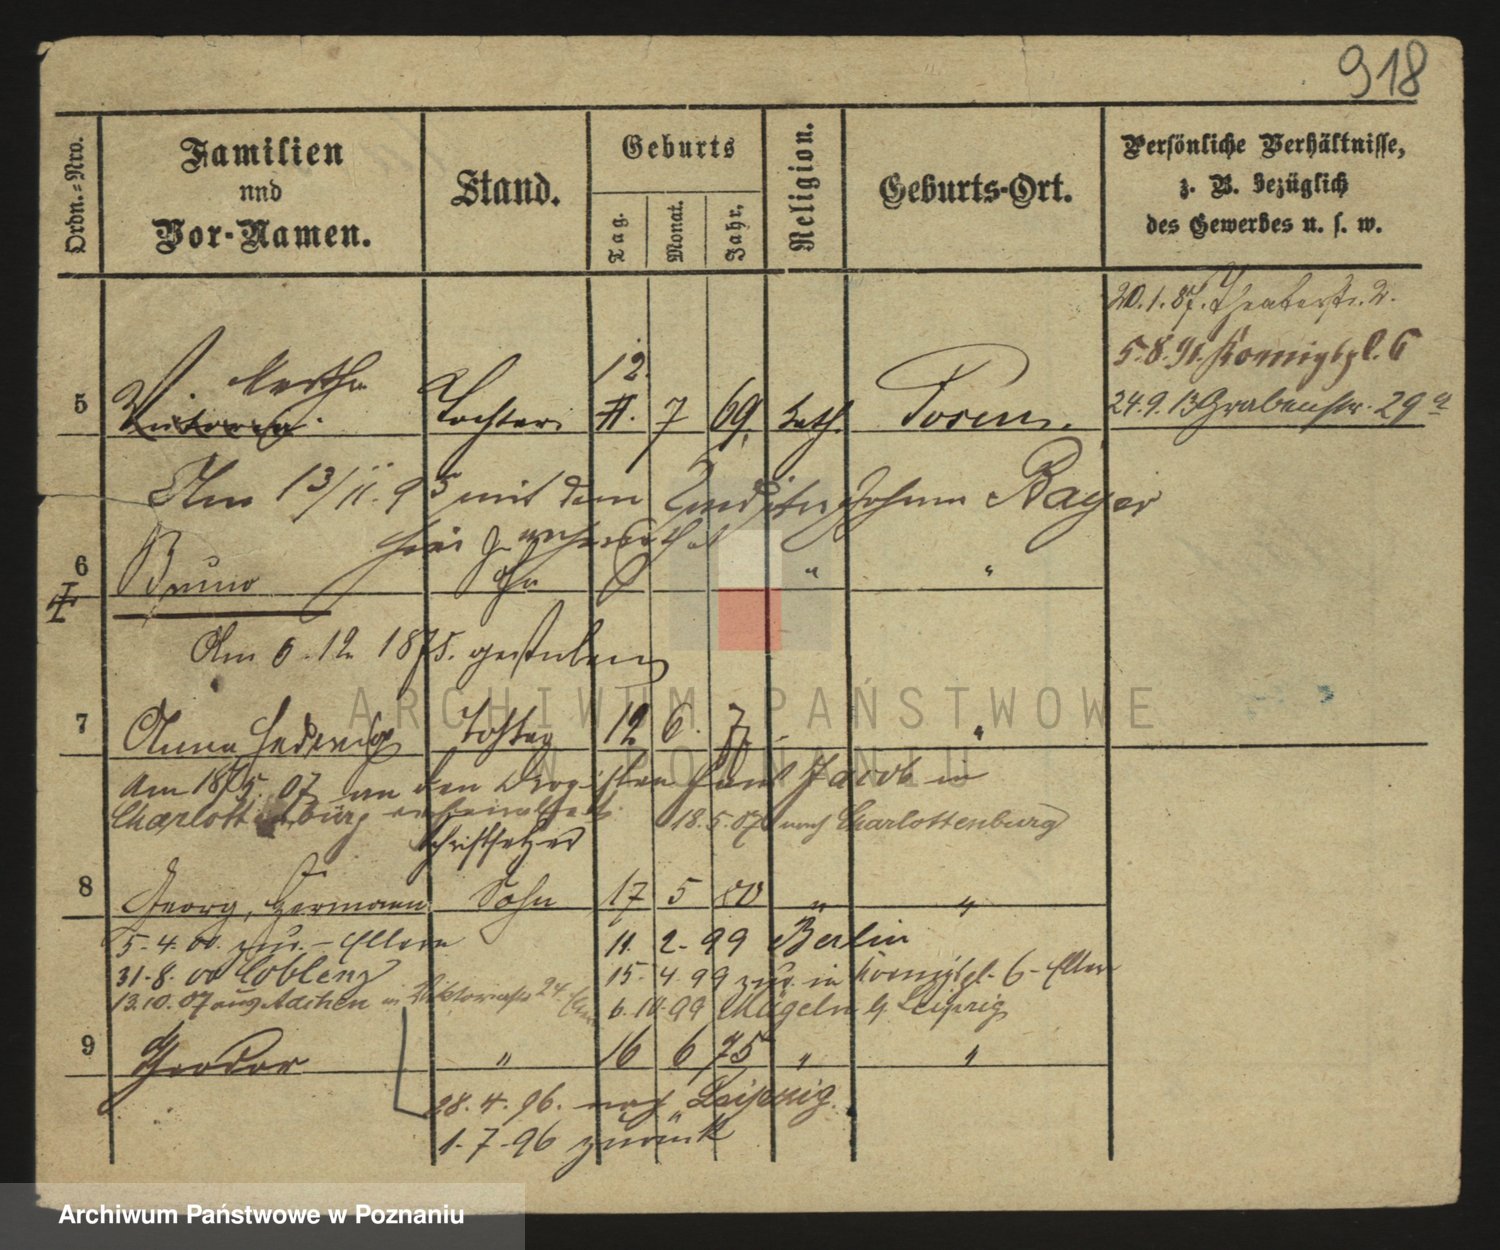 918
Ordn.-Nro.
Familien
und
Vor-Namen.
Stand.
Geburts
Tag.
Monat.
Jahr.
Religion.
Geburts-Ort.
Persönliche Verhältnisse,
z. B. bezüglich
des Gewerbes u. s. w.
20.1.87. Theaterstr. 2.
5.8.91. Koenigspl. 6
24.9.13 Grabenstr. 29a
12.
5 Tochter 11. 7 69. kath. Posen.
Am 13/11.95 mit dem Johann Bayer
hier verheirathet
6 Bruno Sohn " "
Am 6.12 1875. gestorben
7 Anna Hedwig Tochter 12 6. 77 "
Am 18.5.07 an den Drogisten Paul Jacob in
Charlottenburg verheirathet. 18.5.07 nach Charlottenburg
Schriftsetzer
8 Georg, Hermann Sohn 17 5 80 " "
5.4.00. zur. – Eltern 11. 2. 99 Berlin
31.8.00 Coblenz 15.4.99 zur. in Koenigspl. 6 – Eltern
13.10.07 aus Aachen in Viktoriastr 24. 6.10.99 Mügeln b/ Leipzig
9 Theodor " 16 6 75 " "
28.4.96. nach Leipzig.
1.7.96 zurück
ARCHIWUM PAŃSTWOWE
W POZNANIU
Archiwum Państwowe w Poznaniu